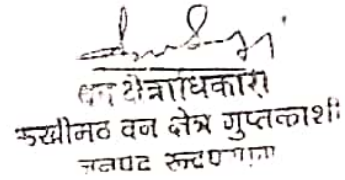 वन क्षेत्राधिकारी
ऊखीमठ वन क्षेत्र गुप्तकाशी
जनपद रूद्रप्रयाग